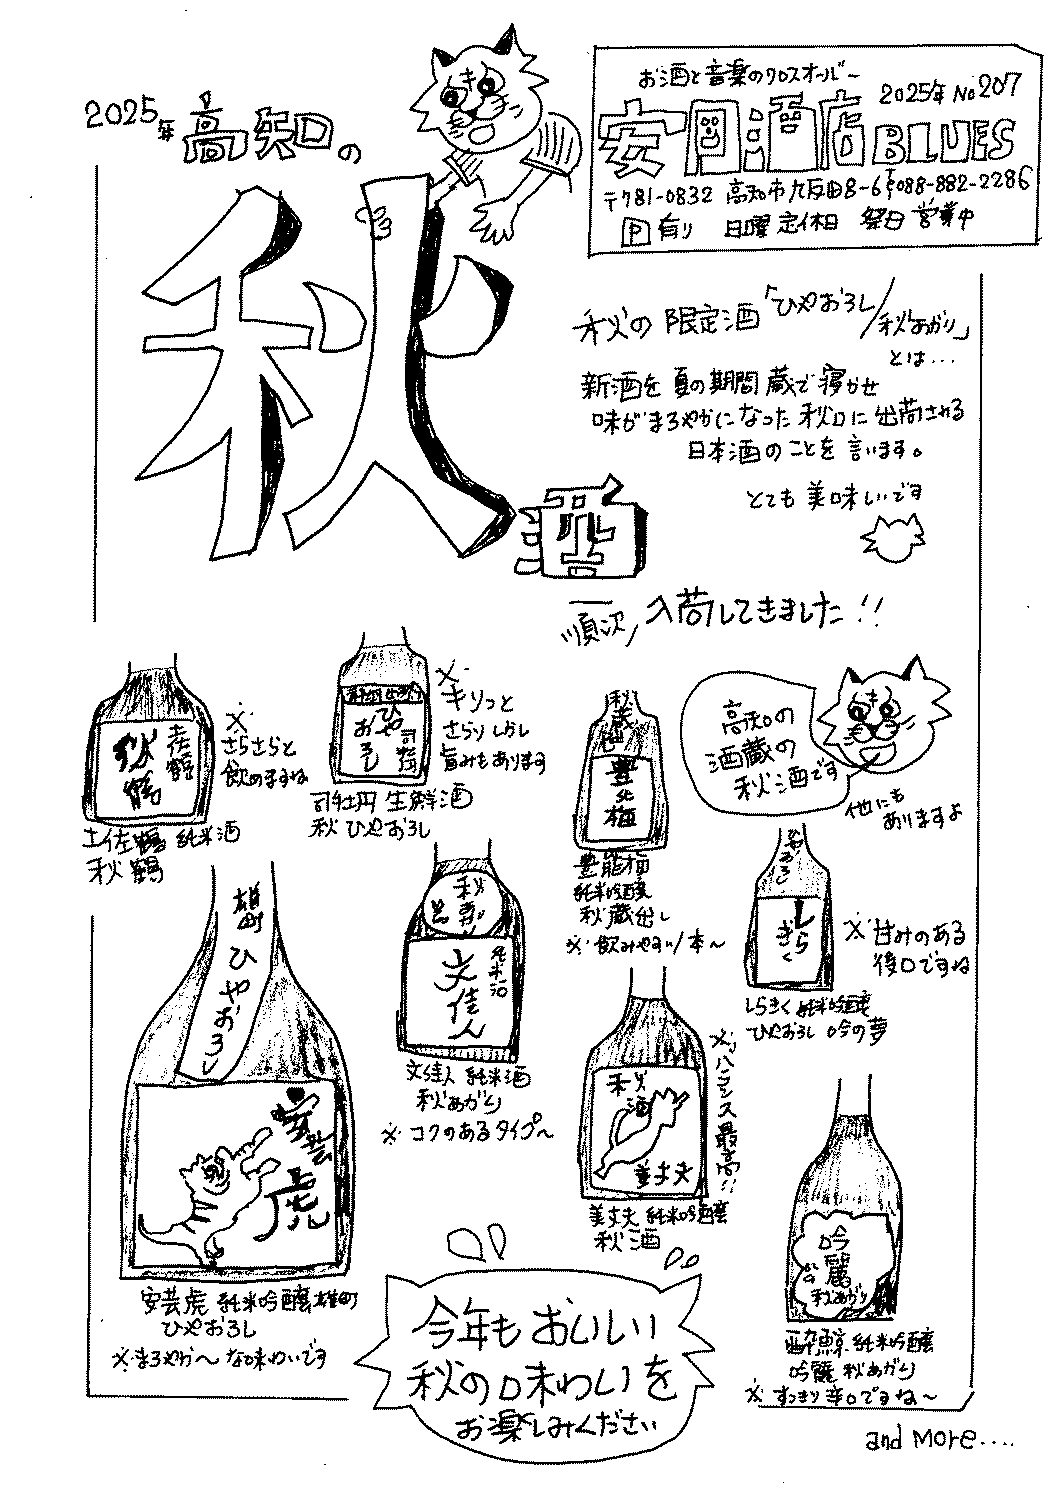 2025年 高知の
秋
酒
お酒と音楽のクロスオーバー
安岡酒店BLUES 2025年 No207
〒781-0832 高知市九反田8-6 Tel088-882-2286
P有り 日曜定休日 祭日営業中
秋の限定酒「ひやおろし/秋あがり」
とは...
新酒を夏の期間蔵で寝かせ
味がまろやかになった秋口に出荷される
日本酒のことを言います。
とても美味しいです
順次/入荷してきました!!
土佐鶴
秋鶴
※さらさらと
飲めますね
土佐鶴 純米酒
秋鶴
司牡丹
ひや
おろし
※キリっと
さらりしかし
旨みもあります
司牡丹 生鮮酒
秋 ひやおろし
秋
蔵出し
豊の梅
豊能梅
純米吟醸
秋 蔵出し
※飲みやすい1本〜
高知の
酒蔵の
秋酒です
他にも
ありますよ
ひやおろし
しら
ぎく
※甘みのある
後口ですね
しらぎく 純米吟醸
ひやおろし 吟の夢
雄町
ひやおろし
安芸
虎
安芸虎 純米吟醸雄町
ひやおろし
※まろやか〜な味わいです
秋
あがり
純米酒
文佳人
文佳人 純米酒
秋あがり
※コクのあるタイプ〜
秋
酒
美丈夫
※バランス最高!!
美丈夫 純米吟醸
秋酒
吟
麗
秋あがり
酔鯨 純米吟醸
吟麗 秋あがり
※すっきり辛口ですね〜
今年もおいしい
秋の味わいを
お楽しみください
and MORE....